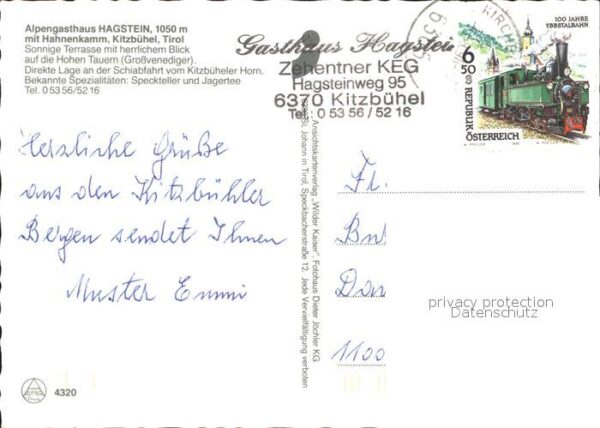 Alpengasthaus HAGSTEIN, 1050 m
mit Hahnenkamm, Kitzbühel, Tirol
Sonnige Terrasse mit herrlichem Blick
auf die Hohen Tauern (Großvenediger).
Direkte Lage an der Schiabfahrt vom Kitzbüheler Horn.
Bekannte Spezialitäten: Speckteller und Jagertee
Tel. 0 53 56/52 16
Gasthaus Hagstein
Zehentner KEG
Hagsteinweg 95
6370 Kitzbühel
Tel. 0 53 56 / 52 16
100 JAHRE
YBBSTALBAHN
6
50
REPUBLIK
ÖSTERREICH
Herzliche Grüße
aus den Kitzbühler
Bergen sendet Ihnen
Muster Emmi
Ansichtskartenverlag „Wilder Kaiser", Fotohaus Dieter Jöchler KG
St. Johann in Tirol, Speckbacherstraße 12. Jede Vervielfältigung verboten
Fr.
1100
privacy protection
Datenschutz
4320